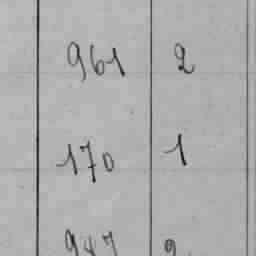 961 2
170 1